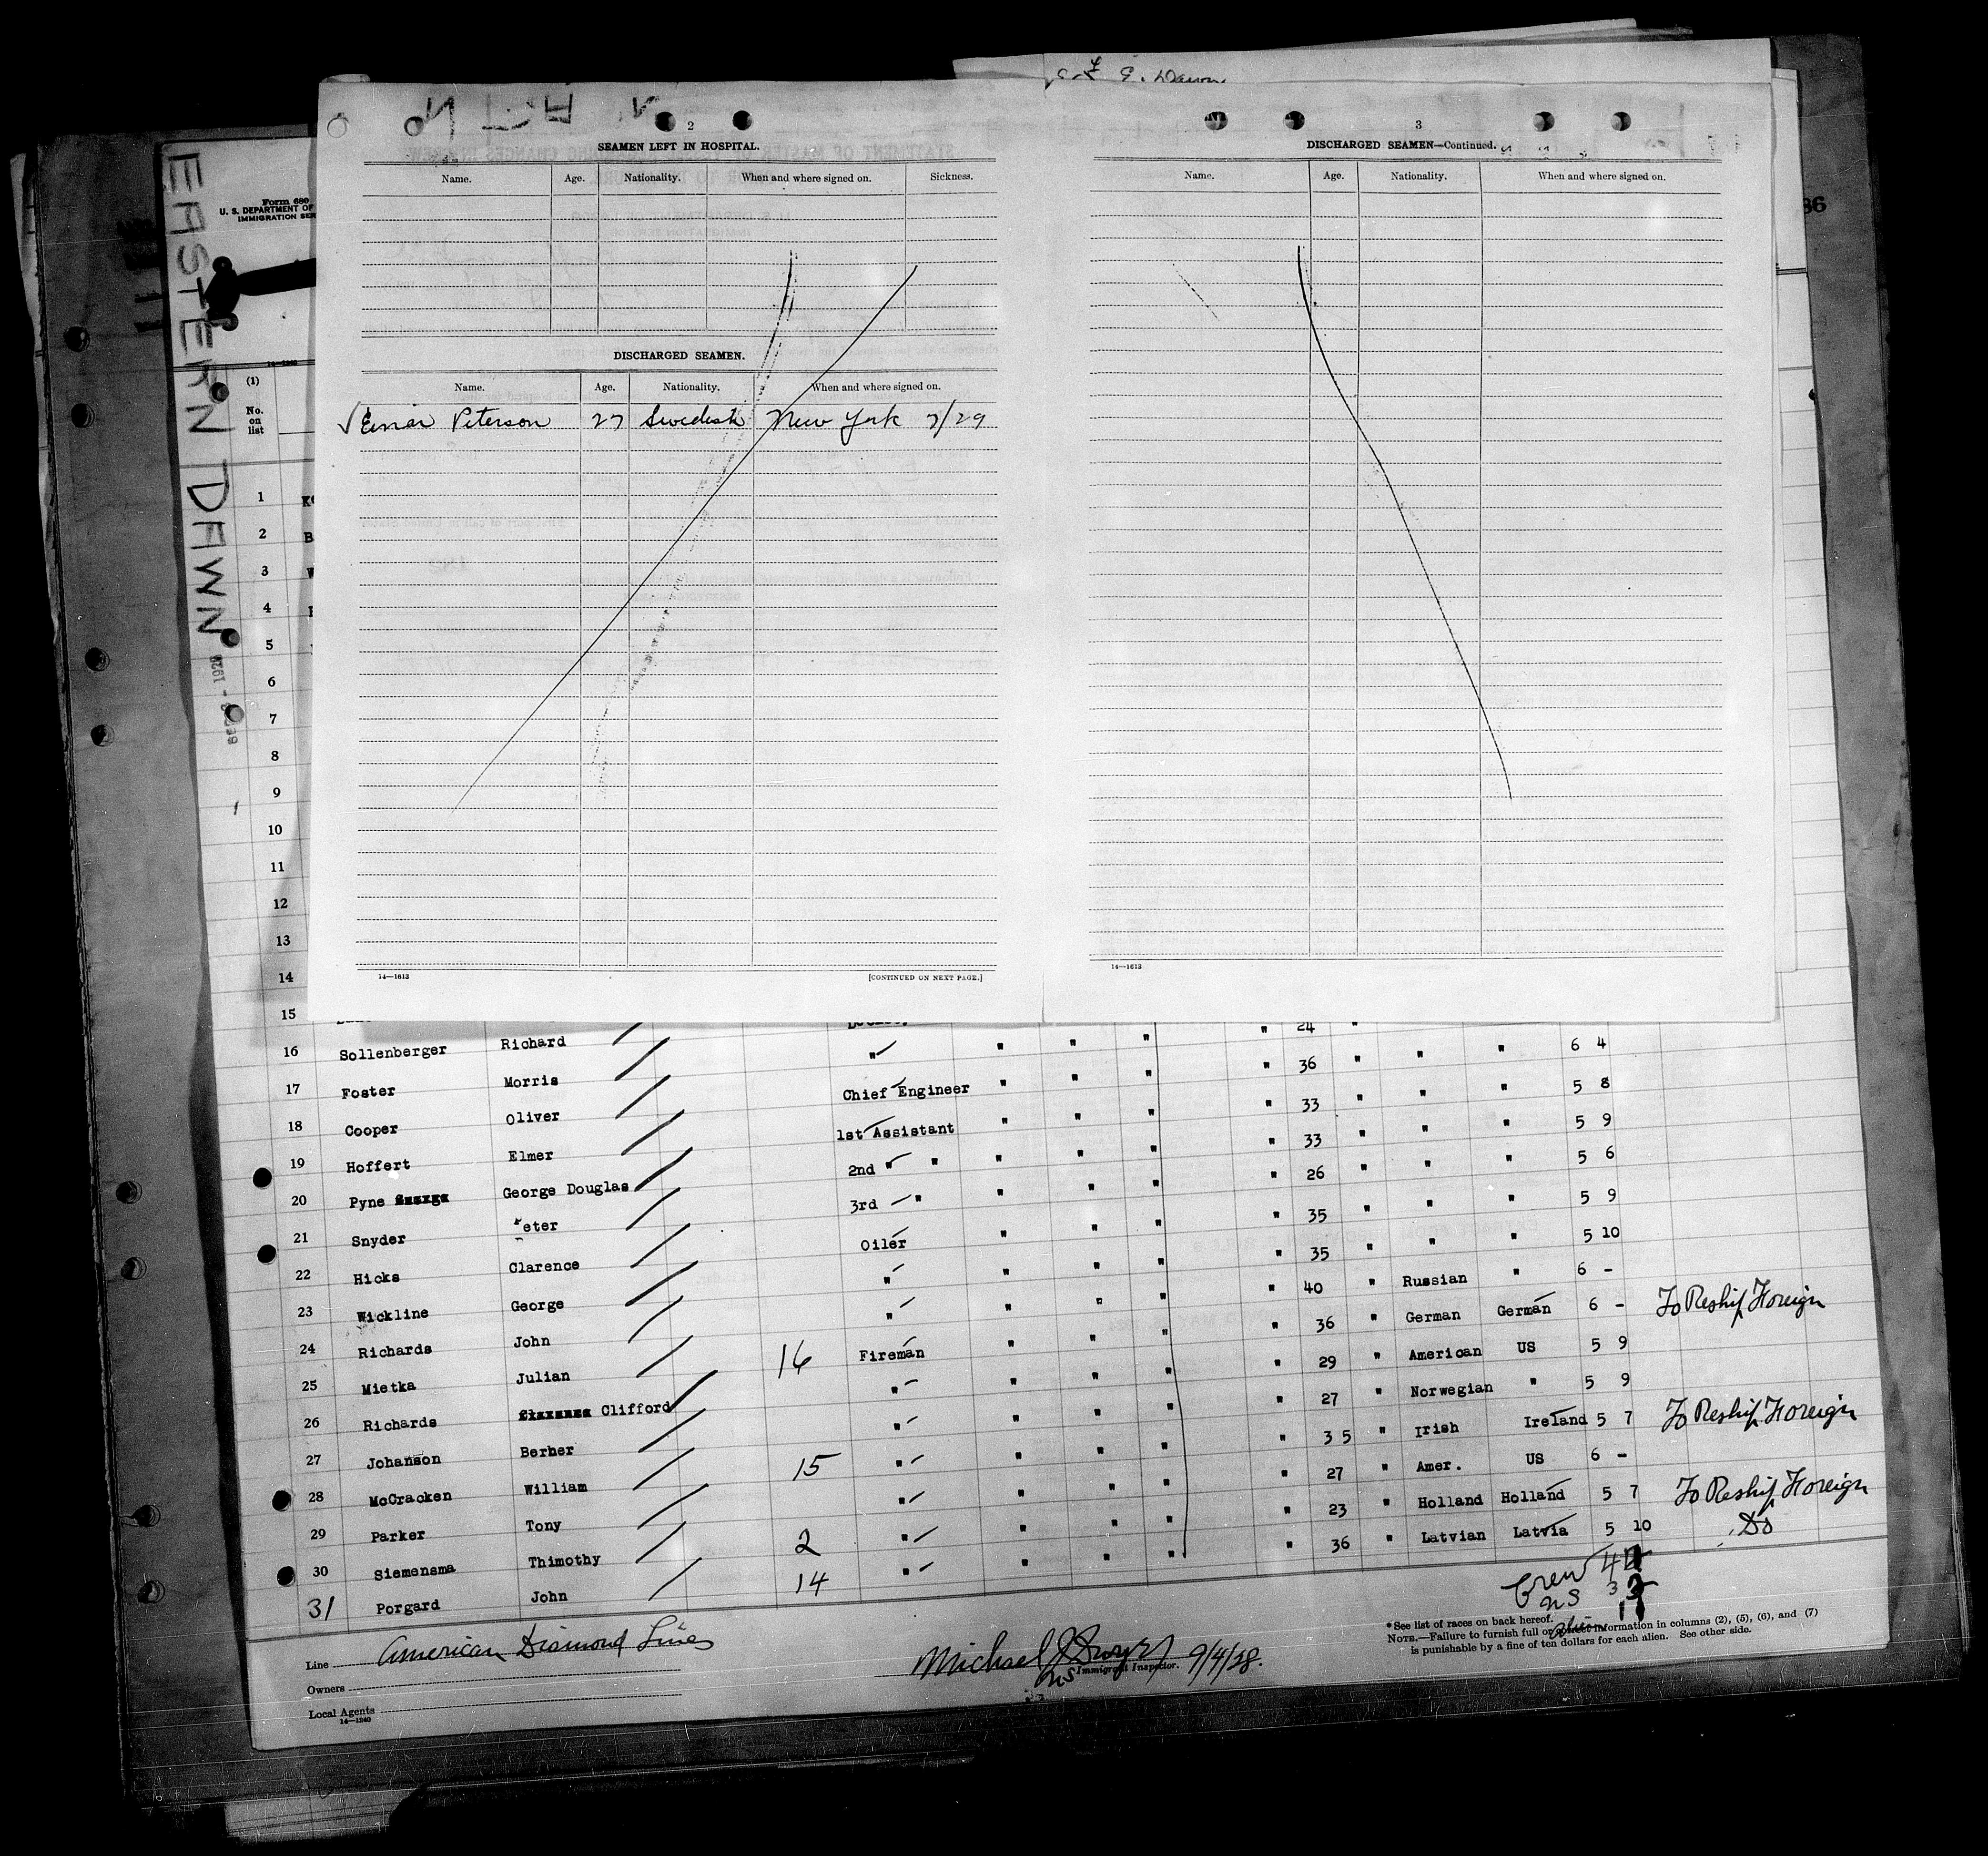 EASTERN DAWN
Form 680
U. S. DEPARTMENT OF
IMMIGRATION SER
86
2
SEAMEN LEFT IN HOSPITAL.
Name. Age. Nationality. When and where signed on. Sickness.
DISCHARGED SEAMEN.
Name. Age. Nationality. When and where signed on.
Peterson 27 Swedish New York 7/29
14—1613 [CONTINUED ON NEXT PAGE.]
3
DISCHARGED SEAMEN—Continued.
Name. Age. Nationality. When and where signed on.
14—1613
14—1240
(1)
No.
on
list
1
2
3
4
5
6
7
8
9
10
11
12
13
14
15 24
16 Sollenberger Richard " " " " " 36 " " " 6 4
17 Foster Morris Chief Engineer " " " " 33 " " " 5 8
18 Cooper Oliver 1st Assistant " " " " 33 " " " 5 9
19 Hoffert Elmer 2nd " " " " " " 26 " " " 5 6
20 Pyne George Douglas 3rd " " " " " 35 " " " 5 9
21 Snyder Peter Oiler " " " " 35 " " " 5 10
22 Hicks Clarence " " " " " 40 " Russian " 6 -
23 Wickline George " " " " " 36 " German German 6 - To Reship Foreign
24 Richards John Fireman " " " " 29 " American US 5 9
25 Mietka Julian 16 " " " " " 27 " Norwegian " 5 9
26 Richards Clifford " " " " " 35 " Irish Ireland 5 7 To Reship Foreign
27 Johanson Berher 15 " " " " " 27 " Amer. US 6 -
28 McCracken William " " " " " 23 " Holland Holland 5 7 To Reship Foreign
29 Parker Tony " " " " " 36 " Latvian Latvia 5 10 Do
30 Siemensma Thimothy 2 "
31 Porgard John 14 "
Crew
Line American Diamond Lines
Owners
Local Agents
14—1240
Michael J Dwyer
Immigrant Inspector. 9/4/28.
* See list of races on back hereof.
NOTE.—Failure to furnish full or correct information in columns (2), (5), (6), and (7)
is punishable by a fine of ten dollars for each alien. See other side.